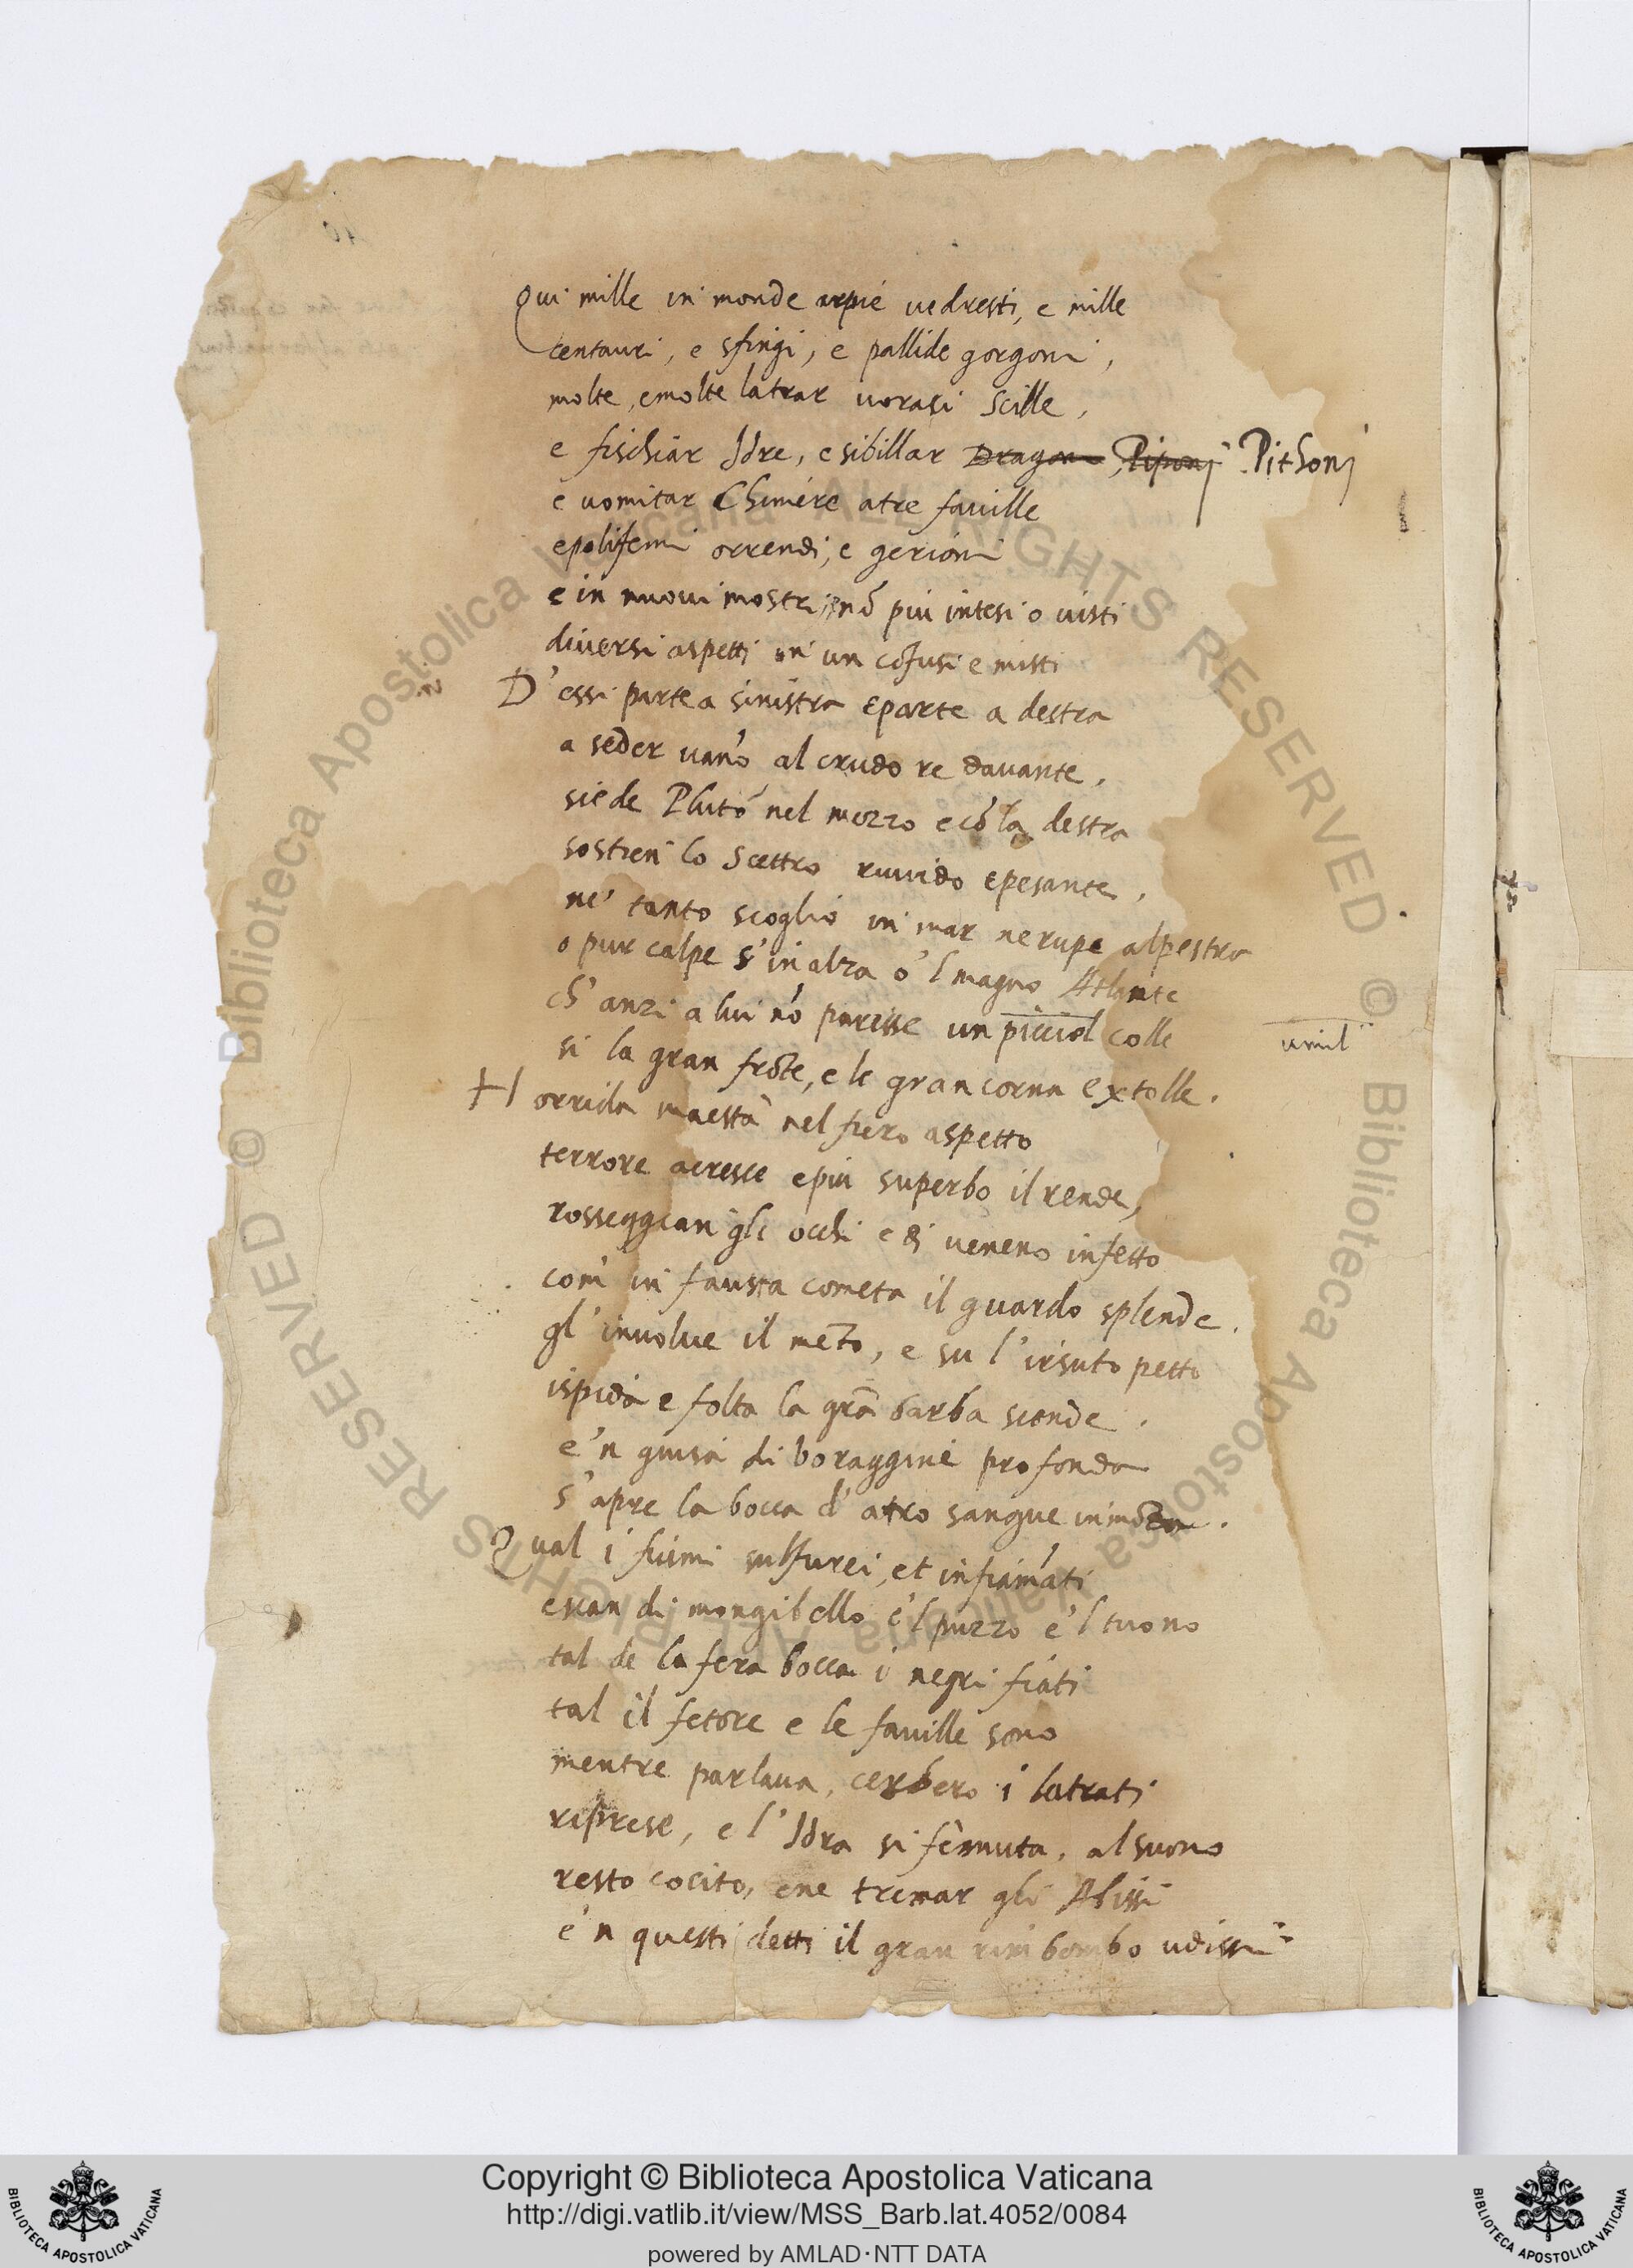 Qui mille in monde arpie vedresti, e mille
centauri, e sfingi, e pallide gorgoni,
molte, e molte latrar voraci Scille,
e fischiar Idre, e sibillar Dragoni Pitoni Pithonj
e vomitar Chimere atre faville
e polifemi orrendi, e gerioni
e in nuovi mostri, e nō piu intesi o visti
diversi aspetti in un cōfusi e misti
D'essi parte a sinistra e parte a destra
a seder vano al crudo re davante,
siede Plutō nel mezzo e cō la destra
sostien lo scettro ruvido e pesante,
ne' tanto scoglio in mar ne rupe alpestra
o pur calpe s'inalza o'l magno Atlante
ch'anzi a lui nō paresse un picciol colle
umil
si la gran frōte, e le gran corna extolle.
Horrida maestà nel fiero aspetto
terrore acresce e piu superbo il rende,
rosseggian gli occhi e di veneno infetto
com' in fausta cometa il guardo splende.
gl'involve il mēto, e su l'irsuto petto
ispida e folta la grā barba scende.
e 'n guisa di boraggine profonda
s'apre la bocca d'atro sangue immōda.
Qual i fumi sulfurei, et infiamati
escan di mongibello e 'l puzzo e 'l tuono
tal de la fera bocca i negri fiati
tal il fetore e le faville sono
mentre parlava, cerbero i latrati
represe, e l'Idra si fe muta, al suono
resto cocito, e ne tremar gli Abissi
e 'n questi detti il gran rimbombo udissi
Copyright © Biblioteca Apostolica Vaticana
http://digi.vatlib.it/view/MSS_Barb.lat.4052/0084
powered by AMLAD·NTT DATA
BIBLIOTECA APOSTOLICA VATICANA
BIBLIOTECA APOSTOLICA VATICANA